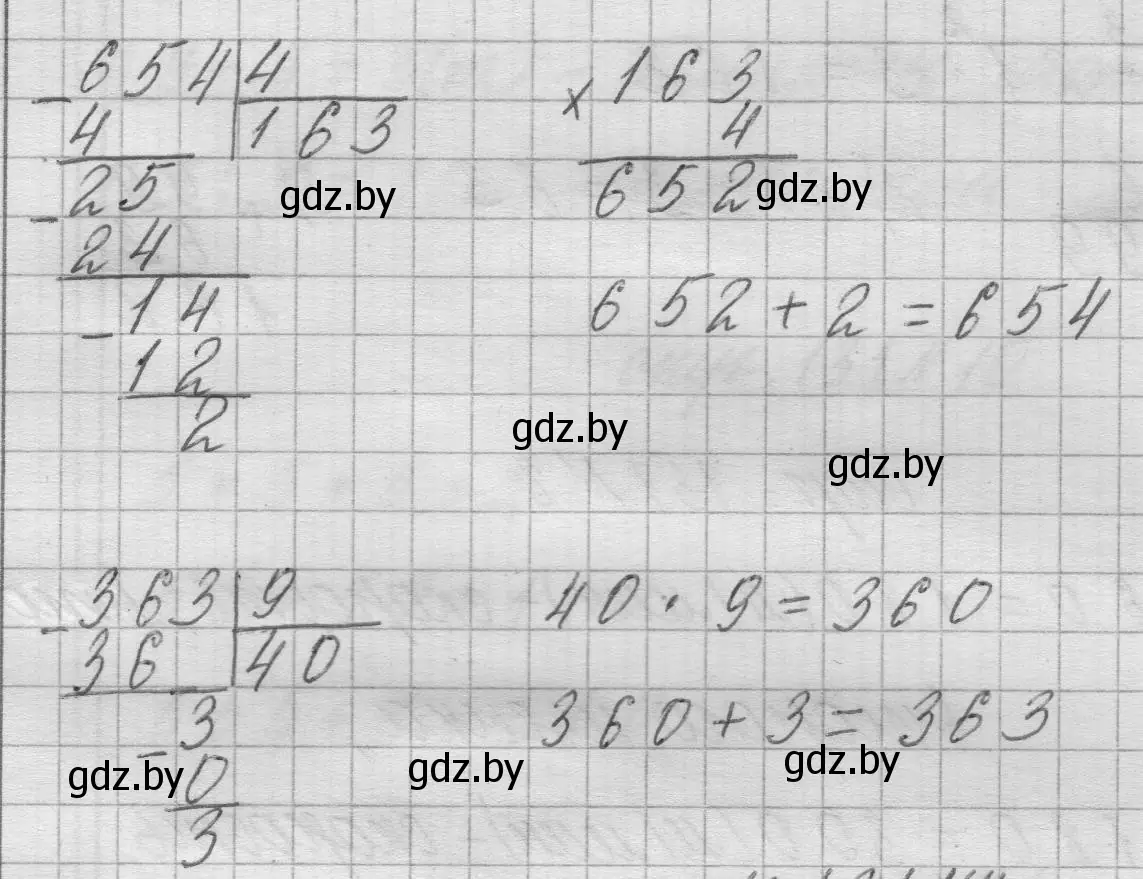 654 | 4
- 4 | 163
25
- 24
14
- 12
2
163
× 4
652
652 + 2 = 654
gdz.by
gdz.by
gdz.by
gdz.by
363 | 9
- 36 | 40
3
- 0
3
40 · 9 = 360
360 + 3 = 363
gdz.by
gdz.by
gdz.by